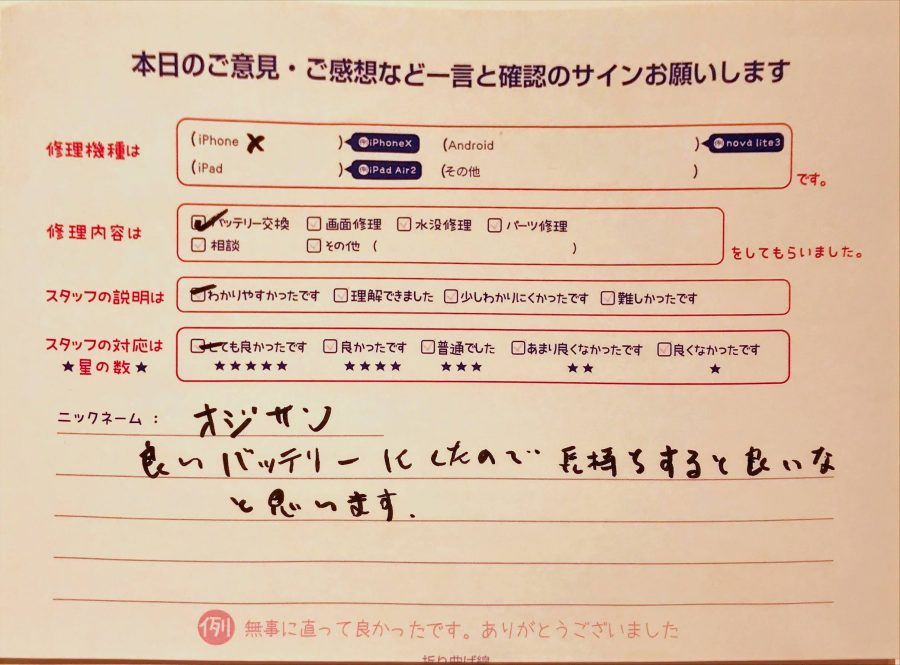 本日のご意見・ご感想など一言と確認のサインお願いします
修理機種は
(iPhone X ) iPhoneX (Android ) nova lite3
(iPad ) iPad Air2 (その他 )
です。
修理内容は
バッテリー交換 画面修理 水没修理 パーツ修理
相談 その他 ( )
をしてもらいました。
スタッフの説明は わかりやすかったです 理解できました 少しわかりにくかったです 難しかったです
スタッフの対応は とても良かったです 良かったです 普通でした あまり良くなかったです 良くなかったです
★星の数★ ★★★★★ ★★★★ ★★★ ★★ ★
ニックネーム: オジサン
良いバッテリーにしたので長持ちすると良いな
と思います.
例 無事に直って良かったです。ありがとうございました
折り曲げ線